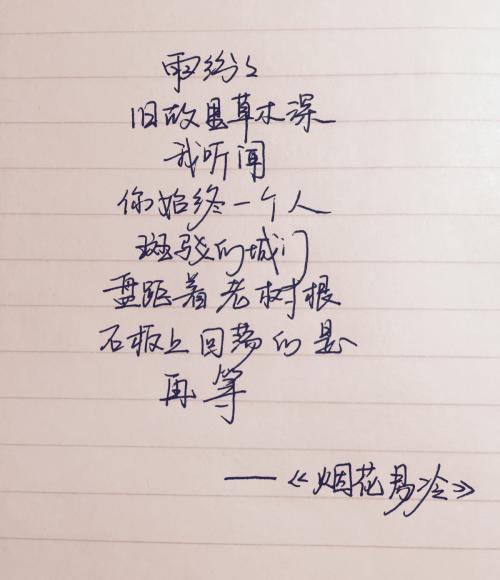 雨纷纷
旧故里草木深
我听闻
你始终一个人
斑驳的城门
盘距着老树根
石板上回荡的是
再等
——《烟花易冷》